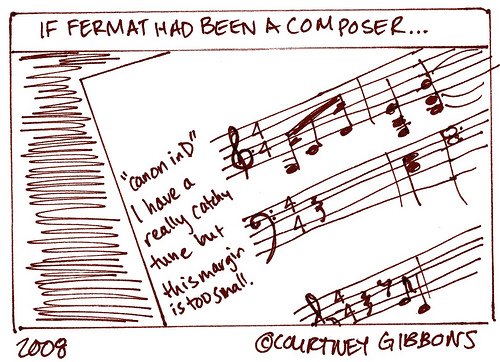 IF FERMAT HAD BEEN A COMPOSER...
"canon in D"
I have a
really catchy
tune but
this margin
is too small.
4
4
4
4
4
4
2008
©COURTNEY GIBBONS